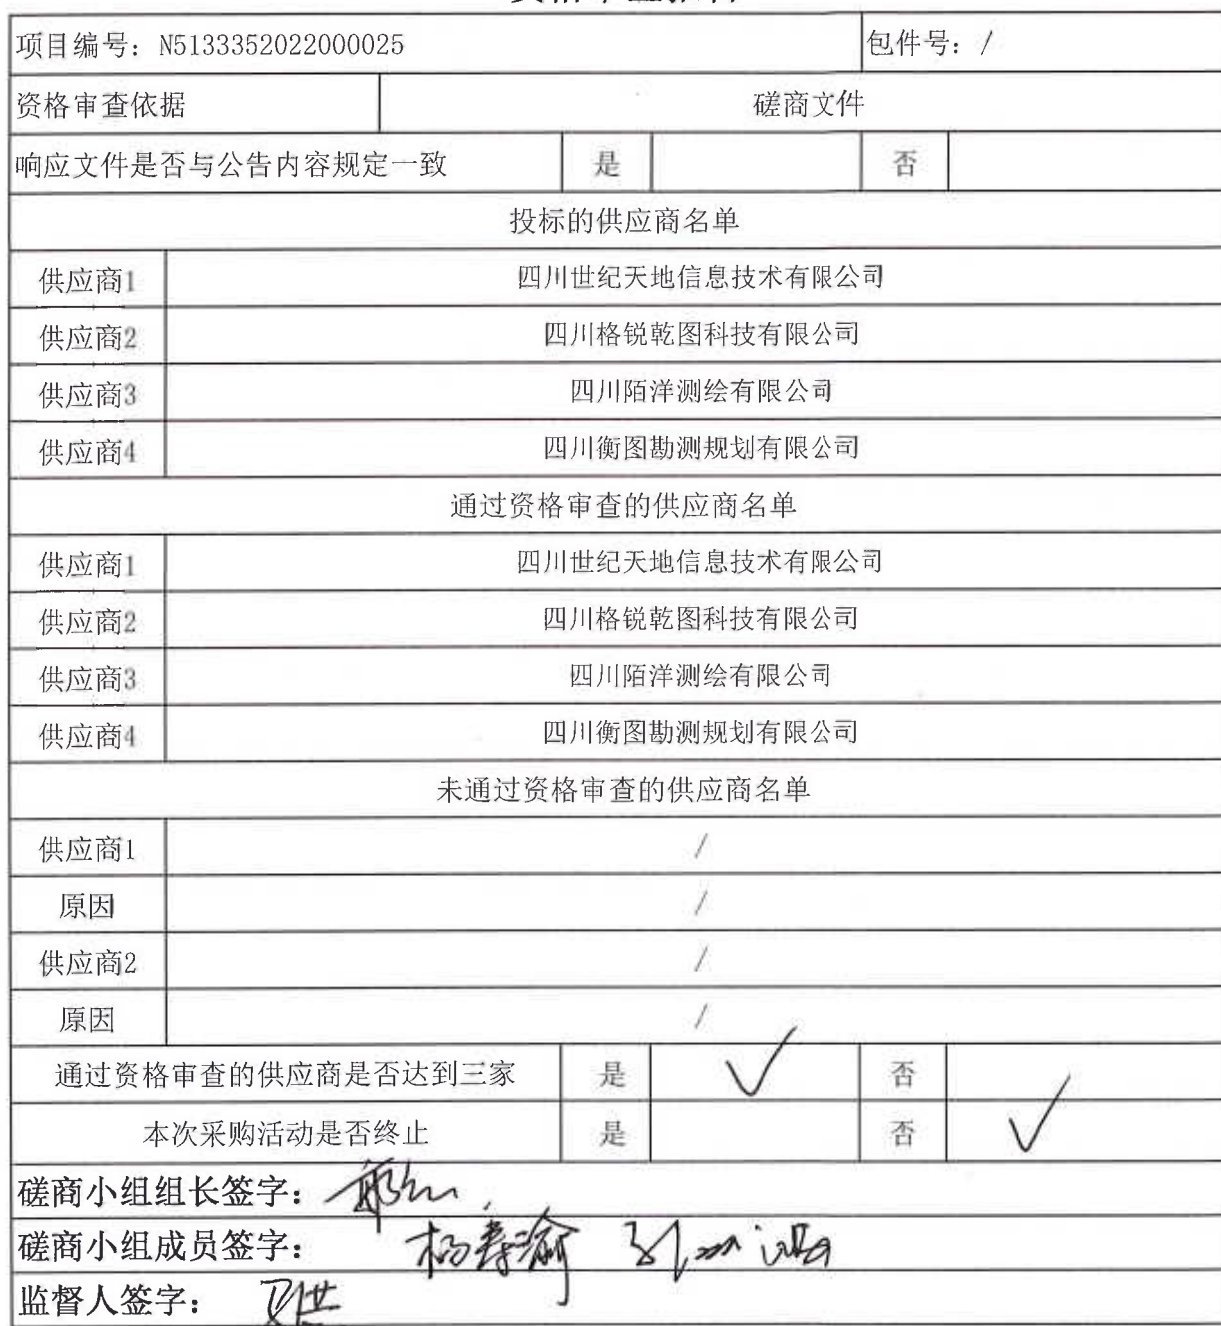 项目编号：N5133352022000025 包件号：/
资格审查依据 磋商文件
响应文件是否与公告内容规定一致 是 否
投标的供应商名单
供应商1 四川世纪天地信息技术有限公司
供应商2 四川格锐乾图科技有限公司
供应商3 四川陌洋测绘有限公司
供应商4 四川衡图勘测规划有限公司
通过资格审查的供应商名单
供应商1 四川世纪天地信息技术有限公司
供应商2 四川格锐乾图科技有限公司
供应商3 四川陌洋测绘有限公司
供应商4 四川衡图勘测规划有限公司
未通过资格审查的供应商名单
供应商1 /
原因 /
供应商2 /
原因 /
通过资格审查的供应商是否达到三家 是 ✓ 否
本次采购活动是否终止 是 否 ✓
磋商小组组长签字：
磋商小组成员签字：
监督人签字：